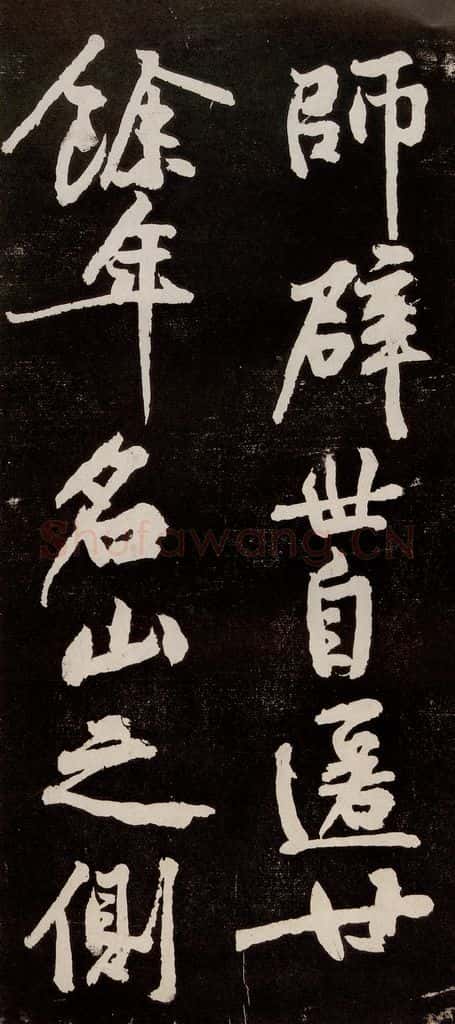 師辟世自遁廿
餘年名山之側
Shufawang.CN